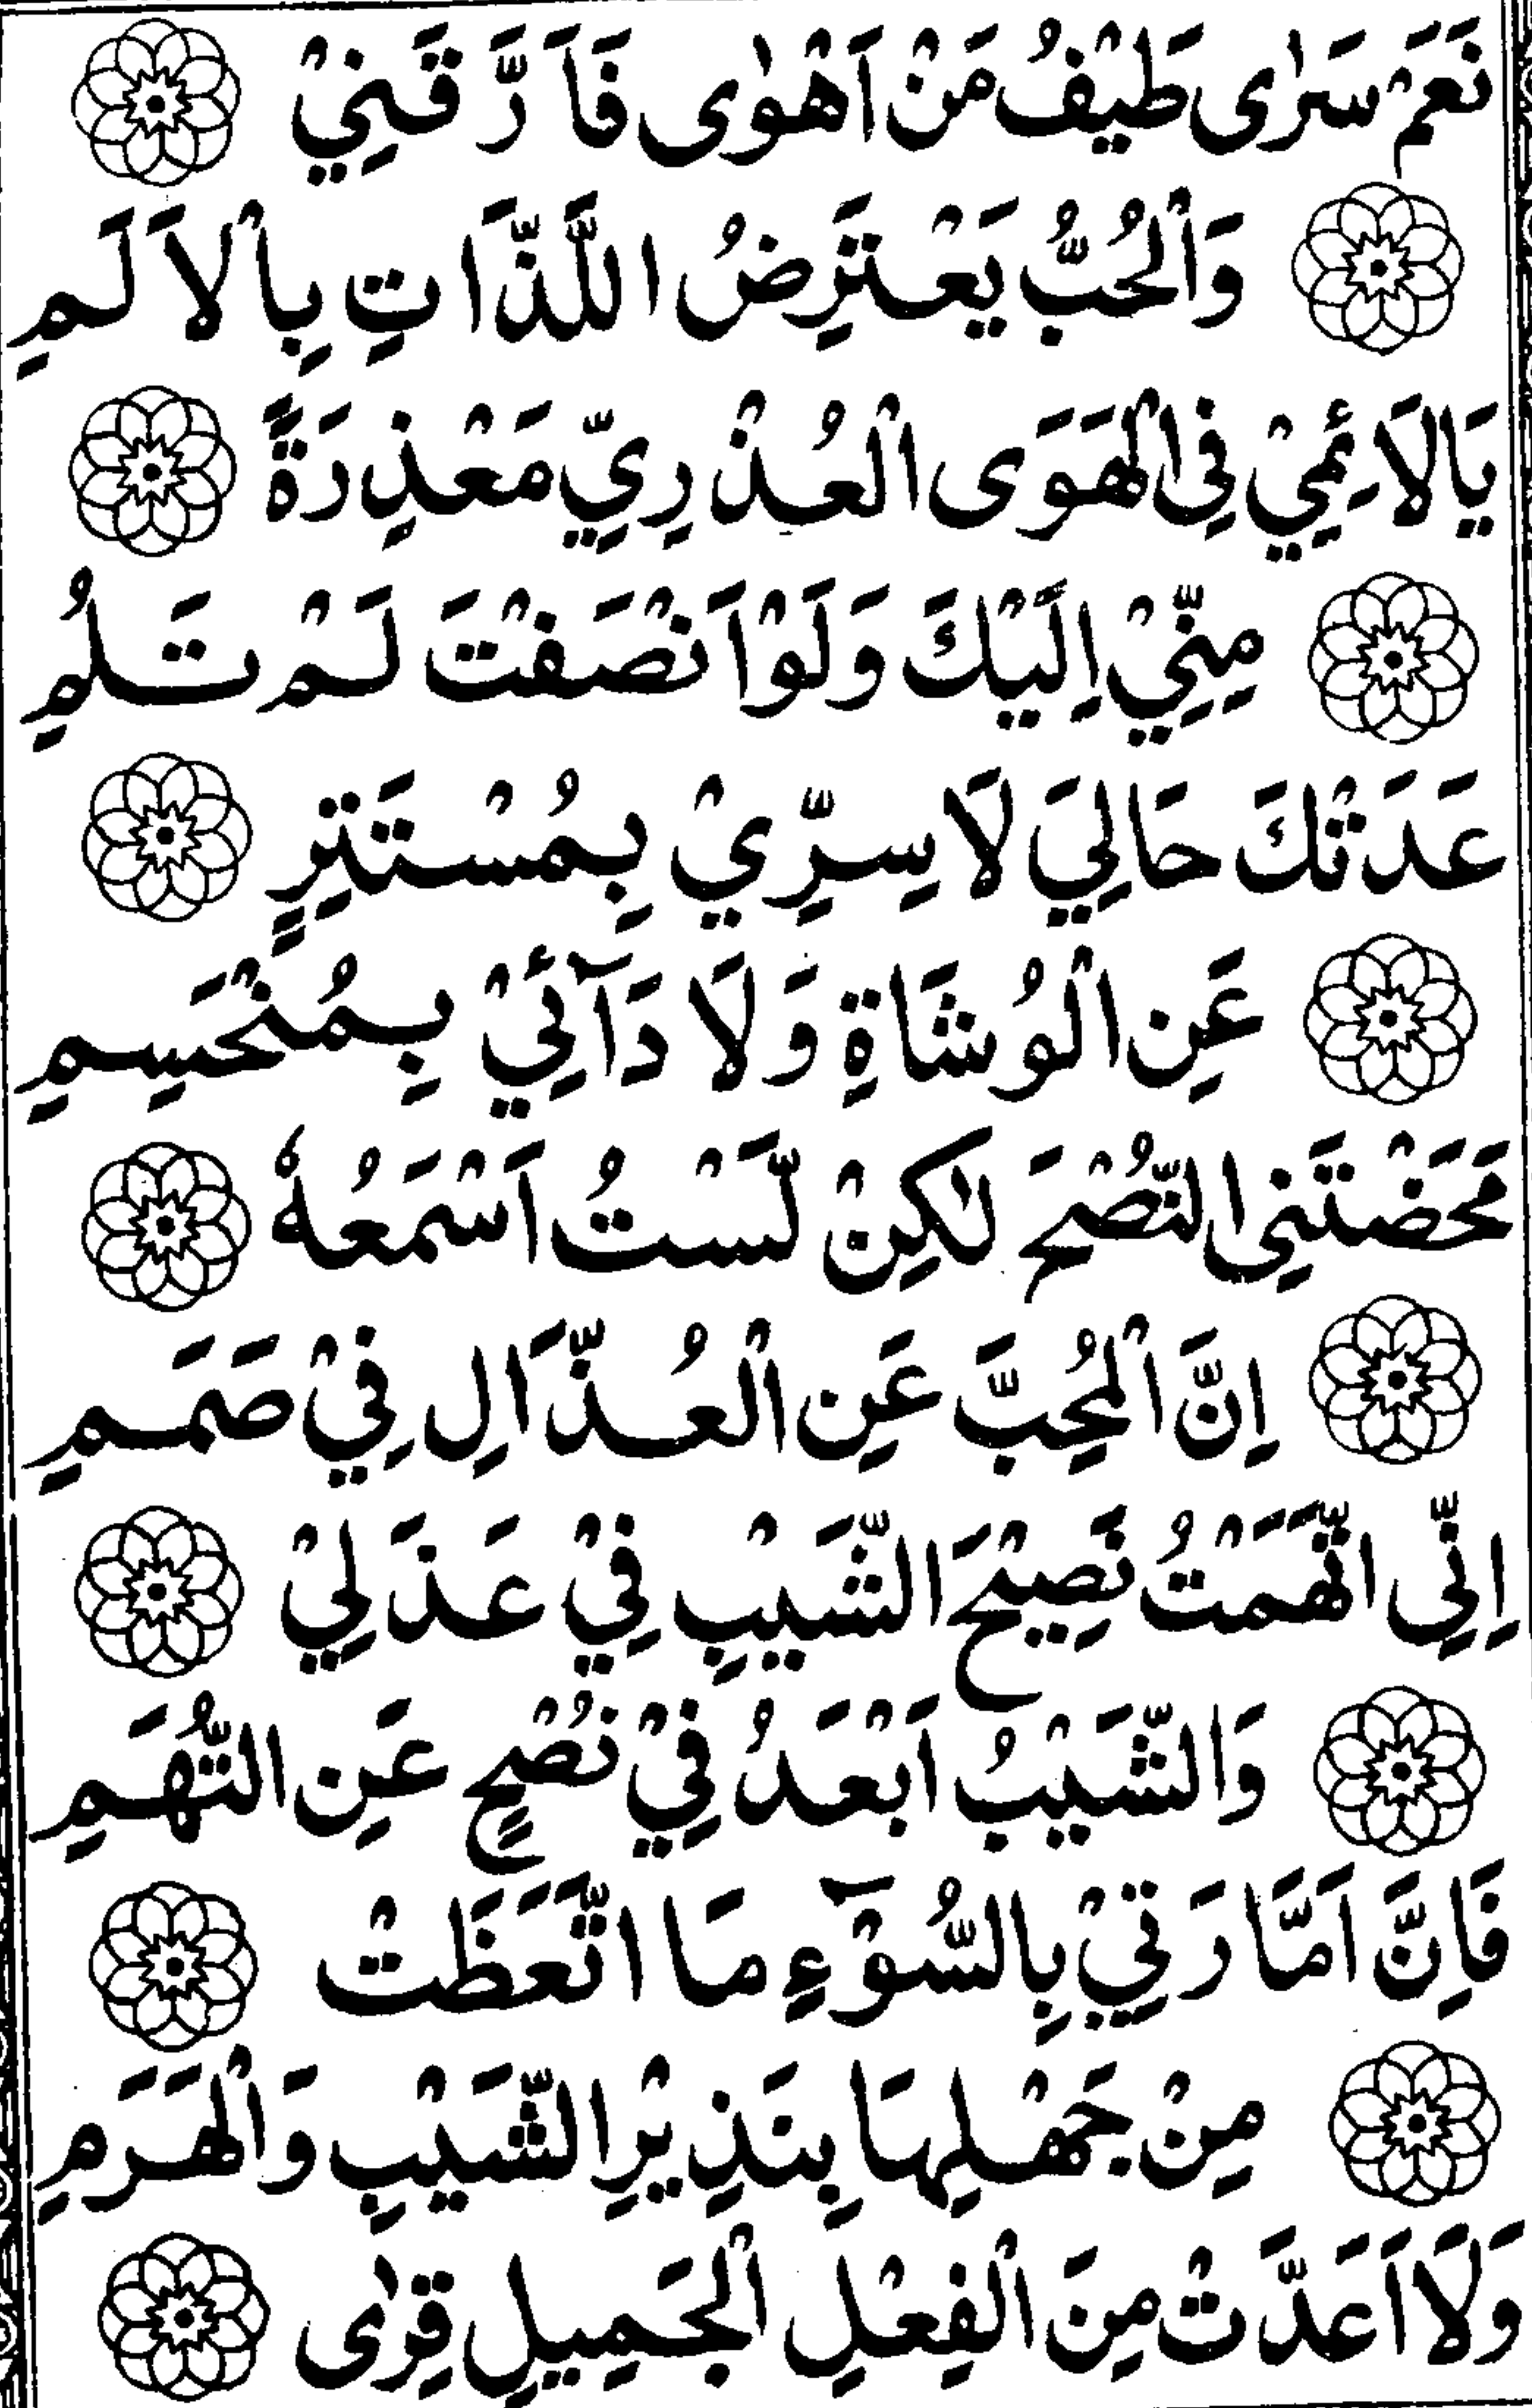 نَعَمْ سَرٰى طَيْفُ مَنْ اَهْوٰى فَاَرَّقَنِيْ
وَالْحُبُّ يَعْتَرِضُ اللَّذَّاتِ بِالْاَلَمِ
يَالَائِمِيْ فِى الْهَوَى الْعُذْرِيِّ مَعْذِرَةً
مِنِّيْ اِلَيْكَ وَلَوْ اَنْصَفْتَ لَمْ تَلُمِ
عَدَتْكَ حَالِيَ لَا سِرِّيْ بِمُسْتَتِرٍ
عَنِ الْوُشَاةِ وَلَا دَآئِيْ بِمُنْحَسِمِ
مَحَضْتَنِى النُّصْحَ لٰكِنْ لَّسْتُ اَسْمَعُهٗ
اِنَّ الْمُحِبَّ عَنِ الْعُذَّالِ فِيْ صَمَمِ
اِنِّى اتَّهَمْتُ نَصِيْحَ الشَّيْبِ فِيْ عَذَلِيْ
وَالشَّيْبُ اَبْعَدُ فِيْ نُصْحٍ عَنِ التُّهَمِ
فَاِنَّ اَمَّارَتِيْ بِالسُّوْٓءِ مَا اتَّعَظَتْ
مِنْ جَهْلِهَا بِنَذِيْرِ الشَّيْبِ وَالْهَرَمِ
وَلَا اَعَدَّتْ مِنَ الْفِعْلِ الْجَمِيلِ قِرٰى